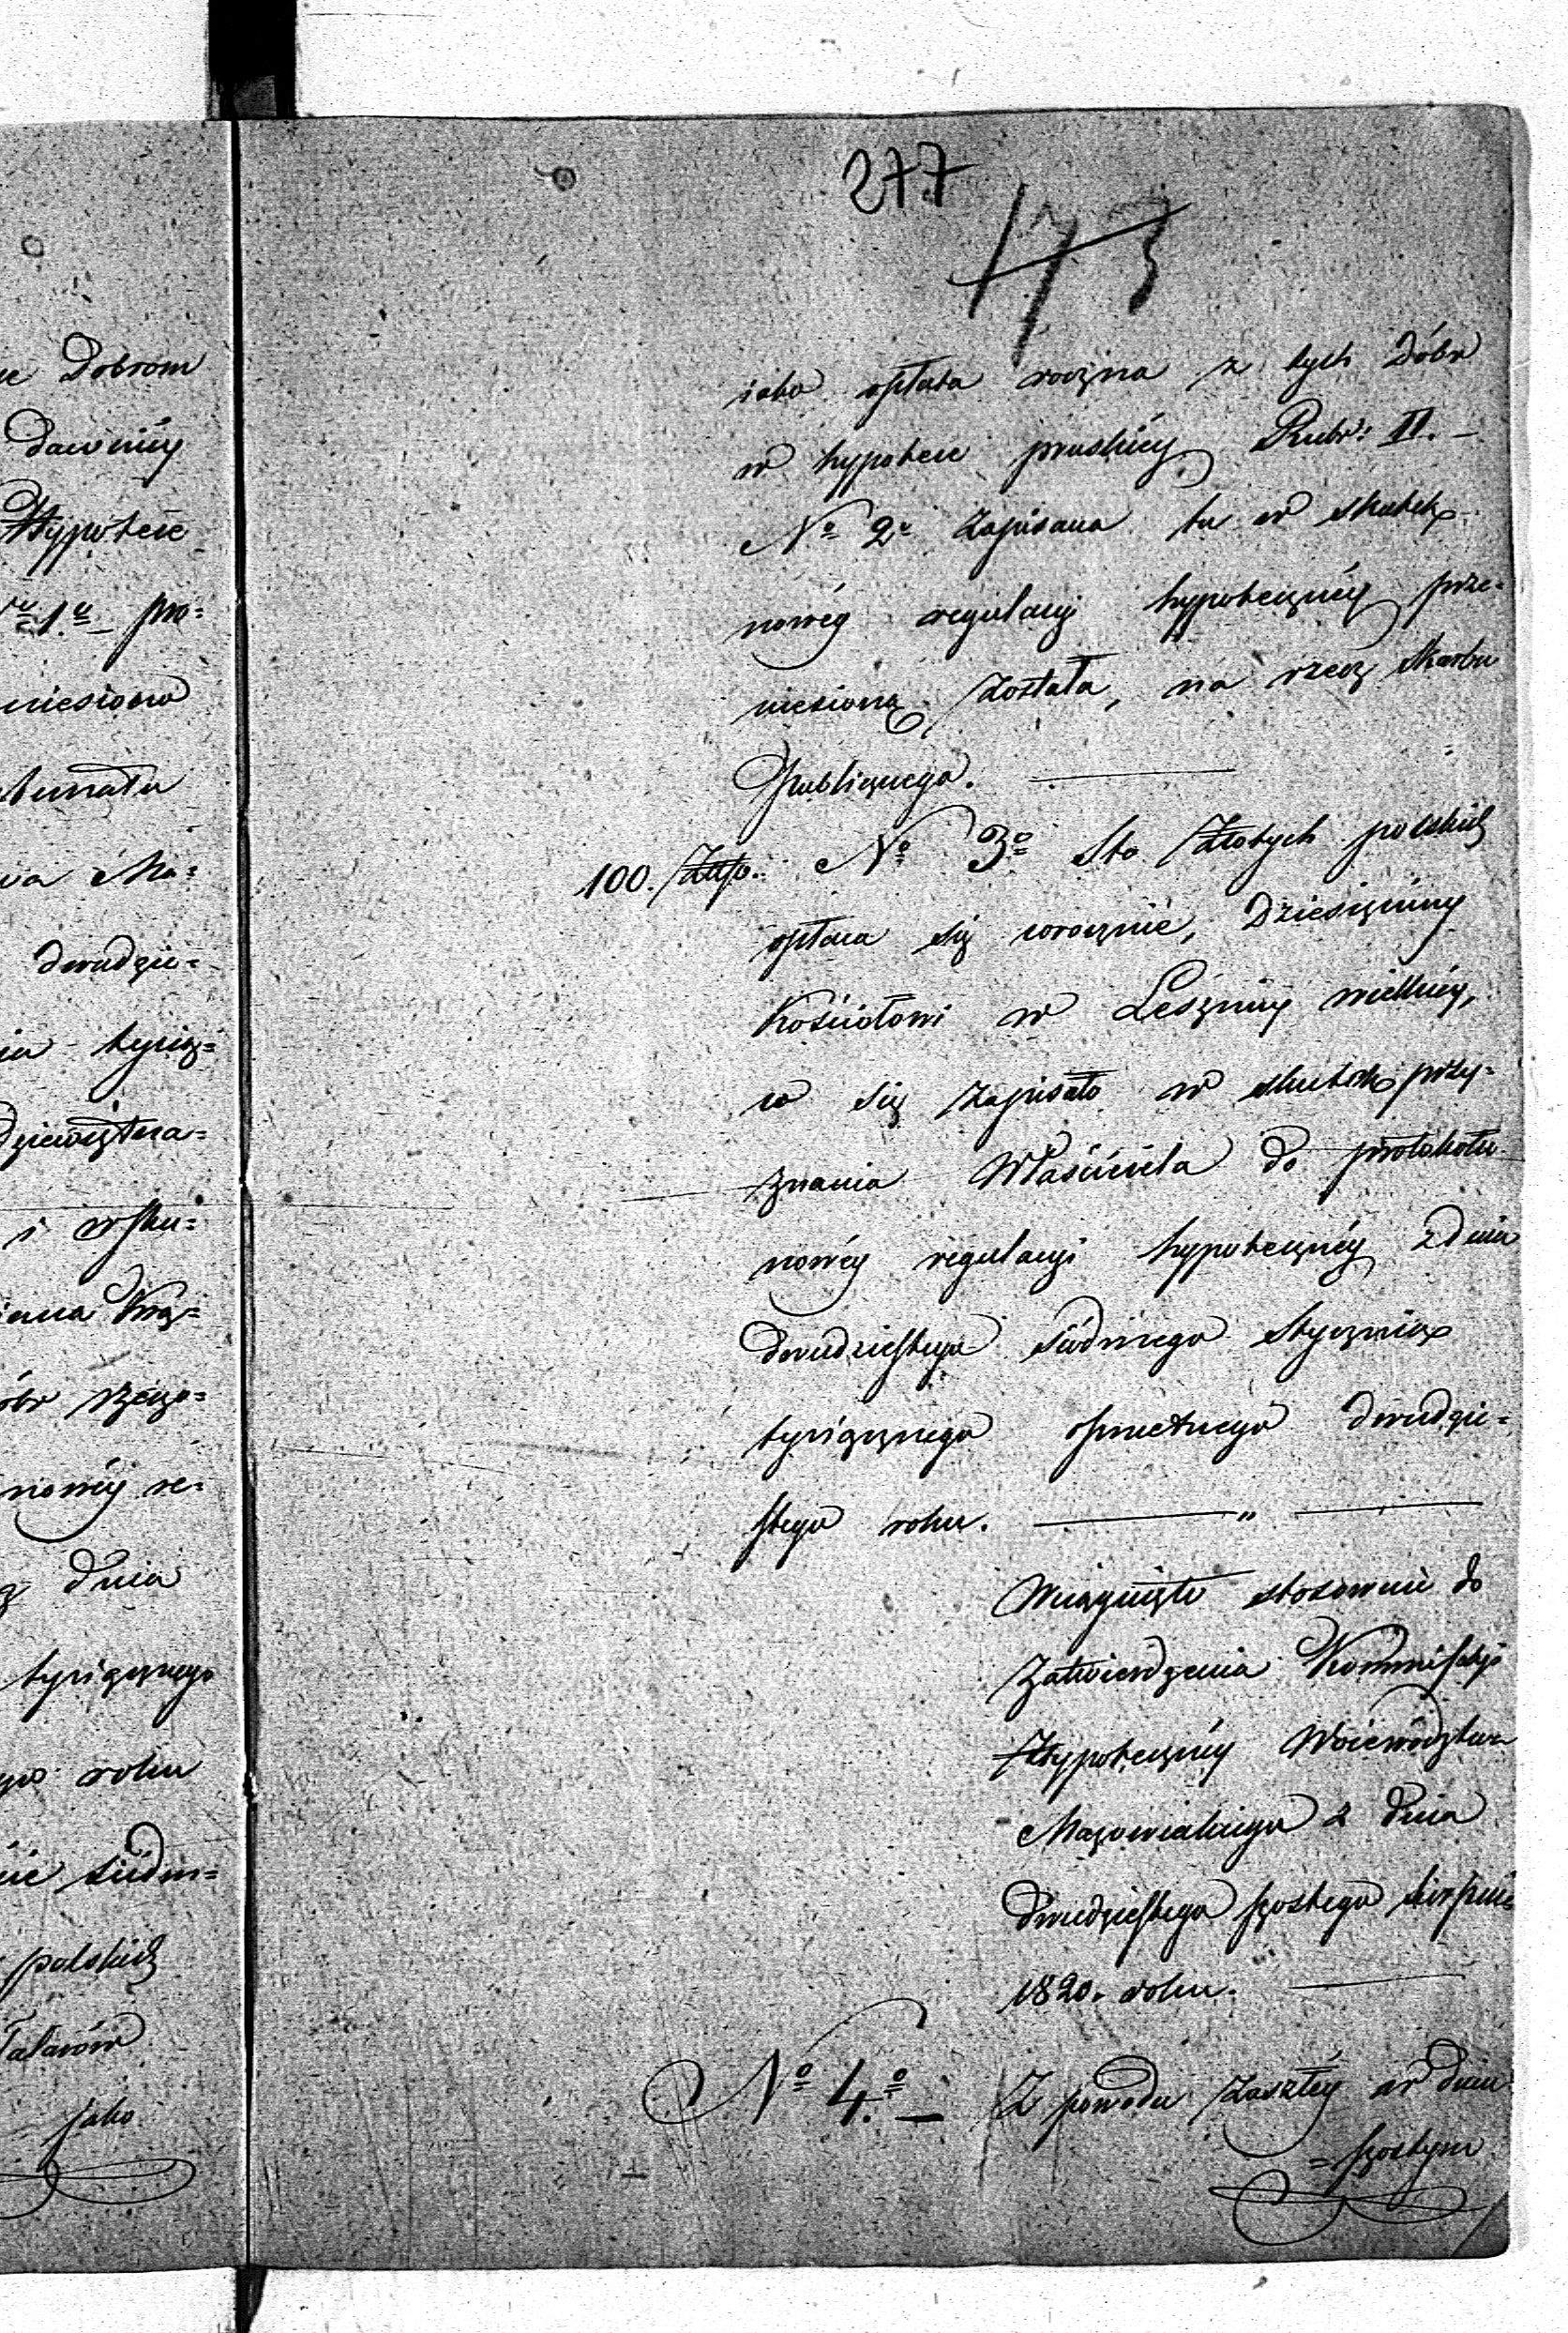 Dobrom
dawniey
Hypotece
1º pro=
niesiona
dwudzie=
tysią=
Dziewiętna=
i wsku=
nowéy re=
dnia
tysiącznego
roku
siedm=
polskich
Talarów
jako
277
173
iako opłata roczna z tych Dóbr
w hypotece pruskiéy Rubr: II. —
Nº 2º zapisana tu w skutek
nowéy regulacyi hypotecznéy prze=
niesioną została, na rzecz Skarbu
Publicznego. —
100. Złłp. Nº 3º Sto Złotych polskich
opłaca się corocznie, Dziesięciny
Kościołowi w Leszniey wielkiéy,
co się zapisało w skutek przy=
znania Właściciela do protokołu
nowéy regulacyi hypotecznéy z dnia
dwudziestego siódmego Stycznia
tysiącznego ośmsetnego dwudzie=
stego roku. — " —
Wciągnięto stosownie do
Zatwierdzenia Kommissyi
Hypotecznéy Woiewództwa
Mazowieckiego z dnia
dwudziestego szóstego Sierpnia
1820. roku. —
Nº 4.º — Z powodu zaszłéy w dniu
= szóstym